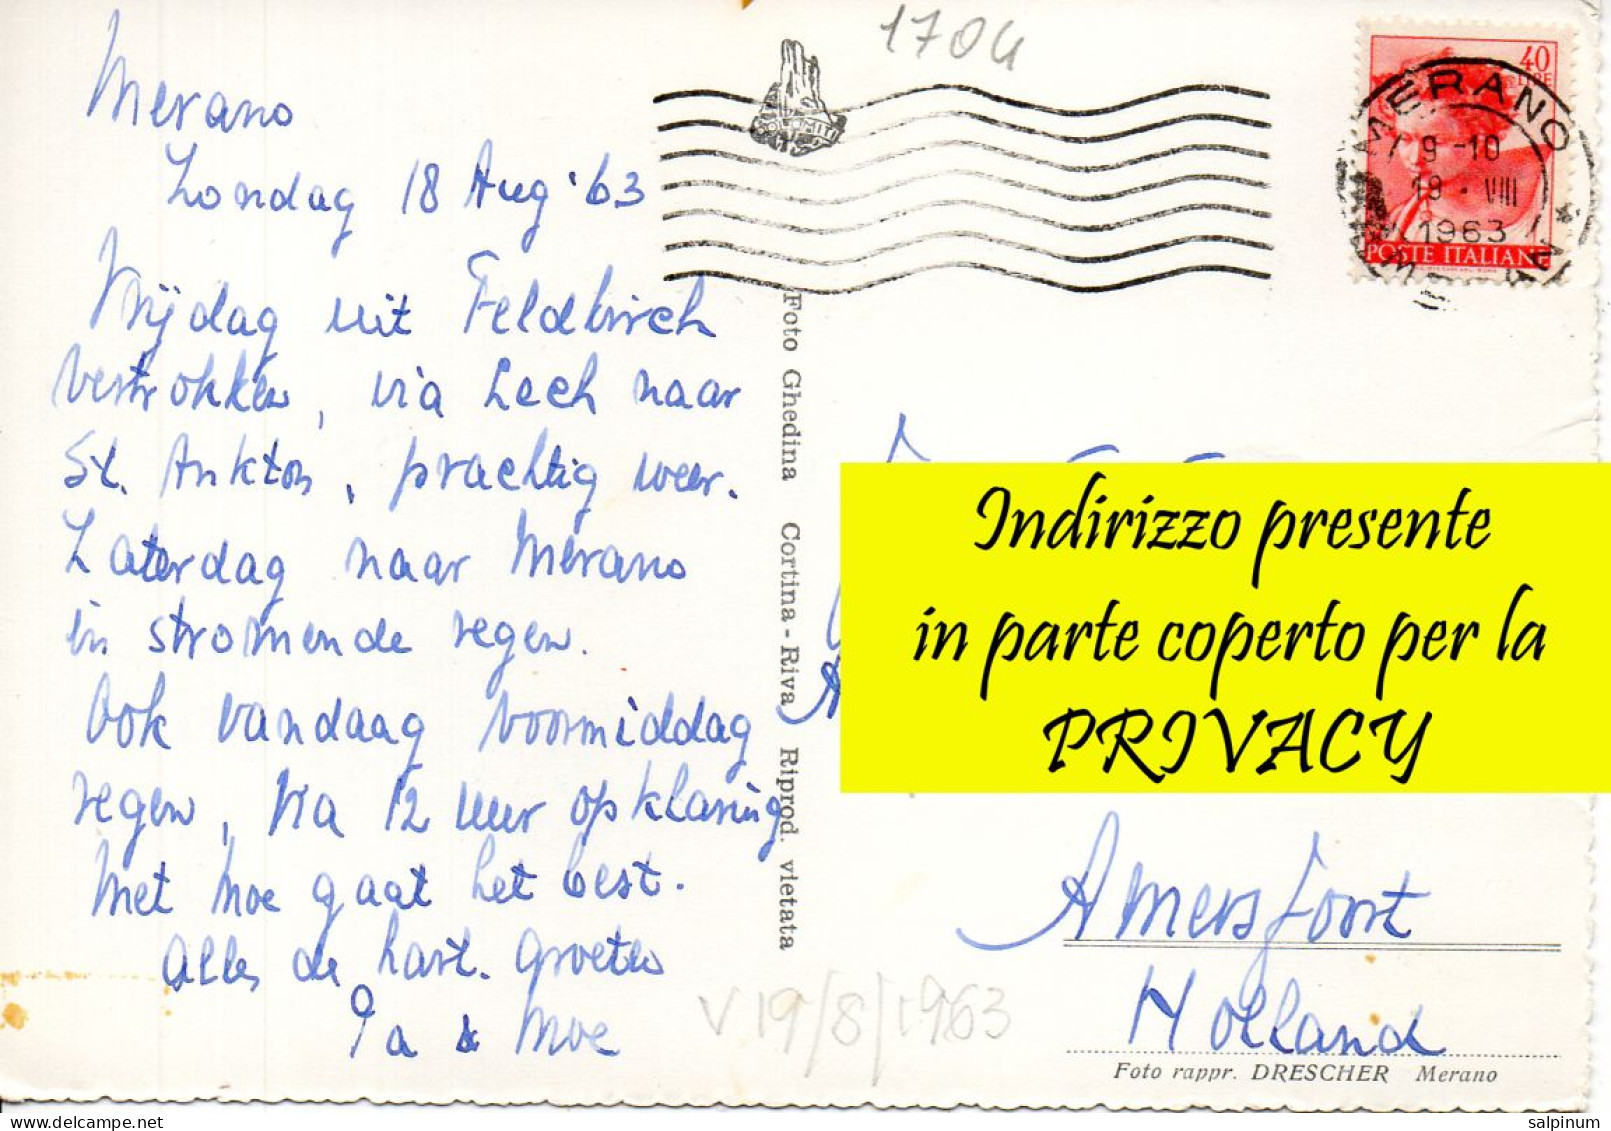 Merano
Zondag 18 Aug '63
Vrijdag uit Feldkirch
vertrokken, via Lech naar
St. Ankton, prachtig weer.
Zaterdag naar Merano
in stromende regen.
Ook vandaag voormiddag
regen, na 12 uur opklaring
Met Moe gaat het best.
Alles de hart. Groeten
Pa & Moe
1704
DOLOMITI
40
LIRE
MERANO
9-10
19 · VIII
1963
POSTE ITALIANE
Foto Ghedina Cortina - Riva Riprod. vietata
Indirizzo presente
in parte coperto per la
PRIVACY
Amersfoort
Holland
V 19/8/1963
Foto rappr. DRESCHER Merano
salpinum